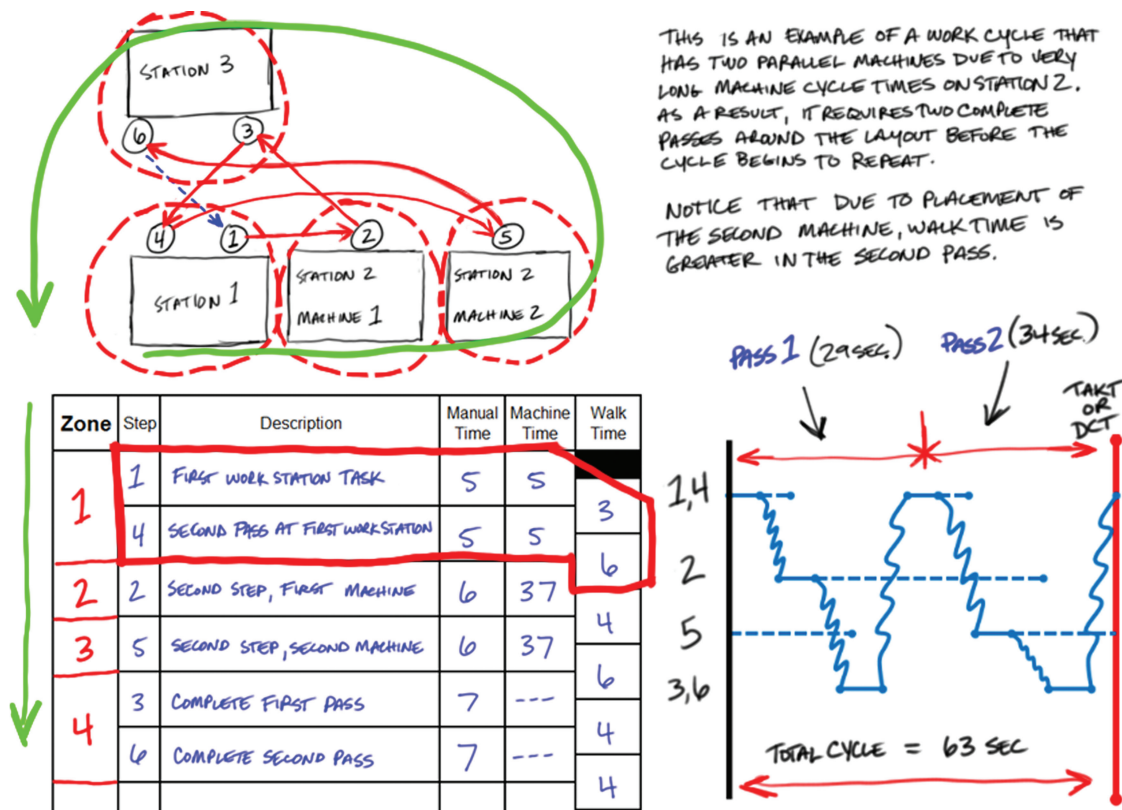 STATION 3
6
3
4
1
2
5
STATION 1
STATION 2
MACHINE 1
STATION 2
MACHINE 2
THIS IS AN EXAMPLE OF A WORK CYCLE THAT
HAS TWO PARALLEL MACHINES DUE TO VERY
LONG MACHINE CYCLE TIMES ON STATION 2.
AS A RESULT, IT REQUIRES TWO COMPLETE
PASSES AROUND THE LAYOUT BEFORE THE
CYCLE BEGINS TO REPEAT.
NOTICE THAT DUE TO PLACEMENT OF
THE SECOND MACHINE, WALK TIME IS
GREATER IN THE SECOND PASS.
Zone Step Description Manual Time Machine Time Walk Time
1 1 FIRST WORK STATION TASK 5 5
3
4 SECOND PASS AT FIRST WORKSTATION 5 5
6
2 2 SECOND STEP, FIRST MACHINE 6 37
4
3 5 SECOND STEP, SECOND MACHINE 6 37
6
4 3 COMPLETE FIRST PASS 7 ---
4
6 COMPLETE SECOND PASS 7 ---
4
PASS 1 (29 SEC.)
PASS 2 (34 SEC.)
TAKT
OR
DCT
1,4
2
5
3,6
TOTAL CYCLE = 63 SEC